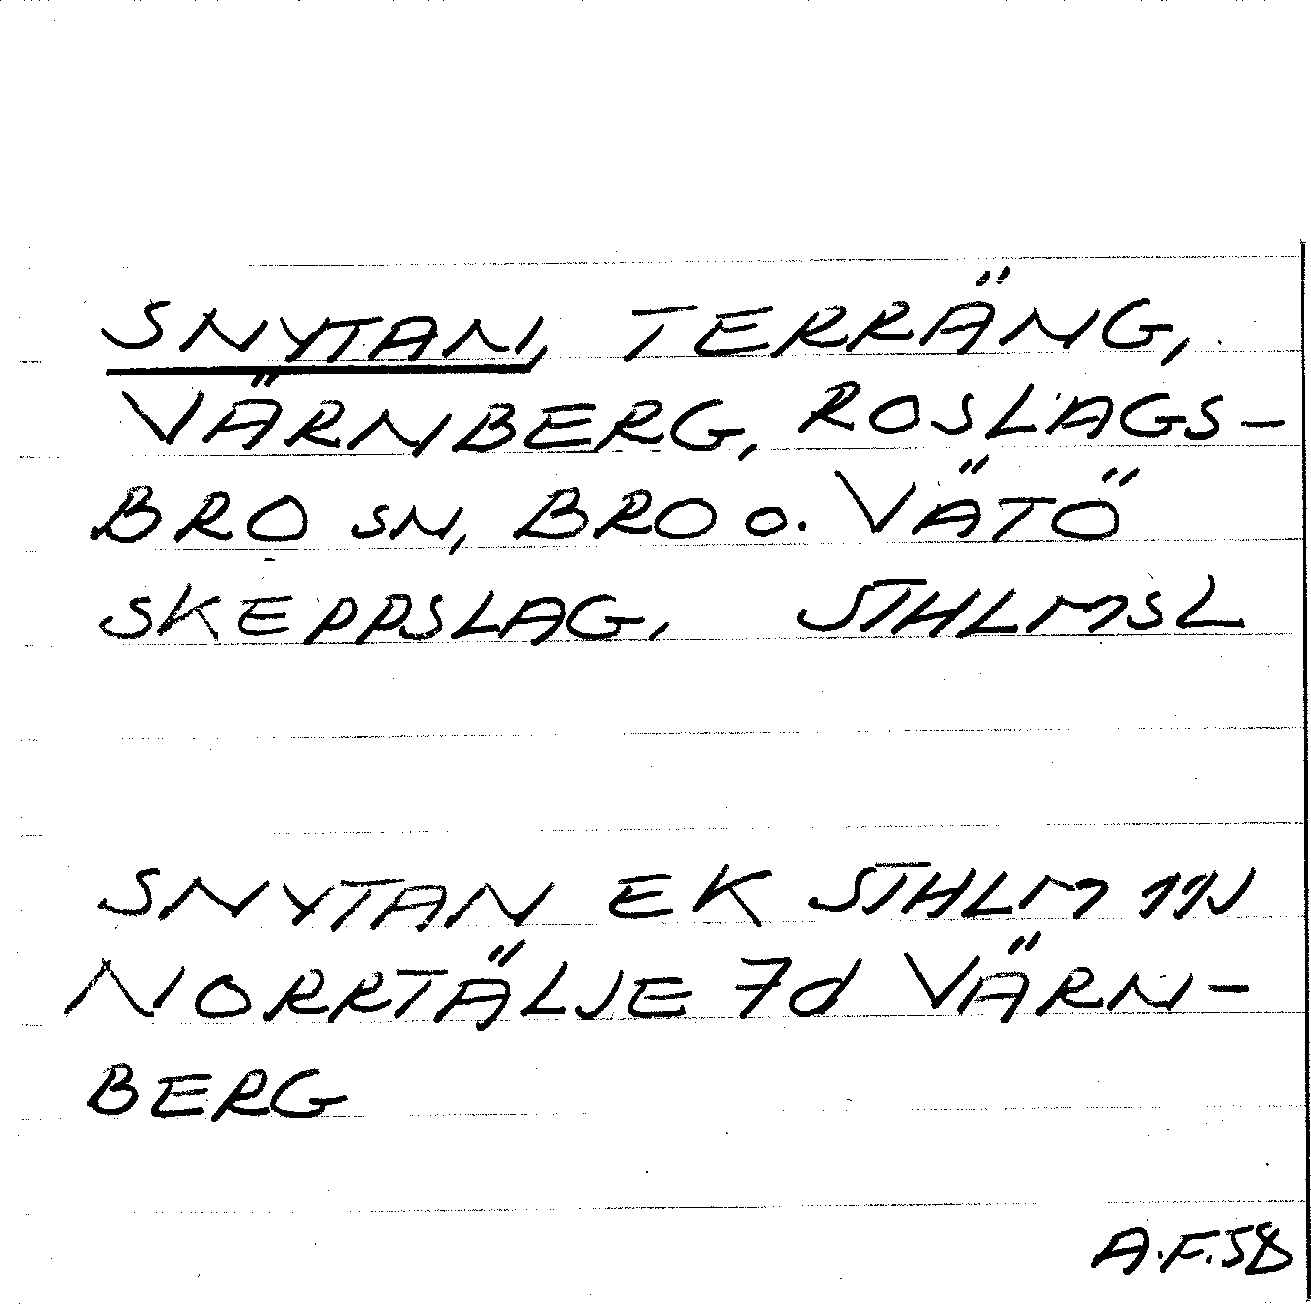 SNYTAN, TERRÄNG,
VÄRNBERG, ROSLAGS-
BRO SN, BRO O. VÄTÖ
SKEPPSLAG, STHLMSL
SNYTAN EK STHLM 111NV
NORRTÄLJE 7d VÄRN-
BERG
A.F.58